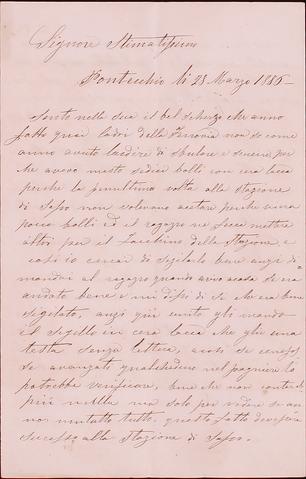 Signore Stimatissimo
Pontecchio li 23 Marzo 1886
Sento nella sua il bel scherzo che anno
fatto quei ladri della Ferrovia non so come
anno avuto l'ardire di
che avevo messo sedici bolli con cera lacca
perche la penultima volta alla Stazione
di Sasso non volevano acetare perche era
poco bolli ed il ragazzo ne fece mettere
altri per il facchino della Stazione e
così io cercai di sigilarlo bene anzi di=
mandai al ragazzo quando arivò a casa se era
andato bene e mi disse di se che era ben
sigelato, anzi qui unito gli mando
il Sigello in cera lacca che gli è una
testa senza lettera, acciò se
se avanzati qualcheduno nel paniere lo
potrebbe verificare, bene che non conta di
più nulla ma solo per vedere se an=
no mutatto tutto, questo fatto deve esere
sucesso alla Stazione di Sasso.